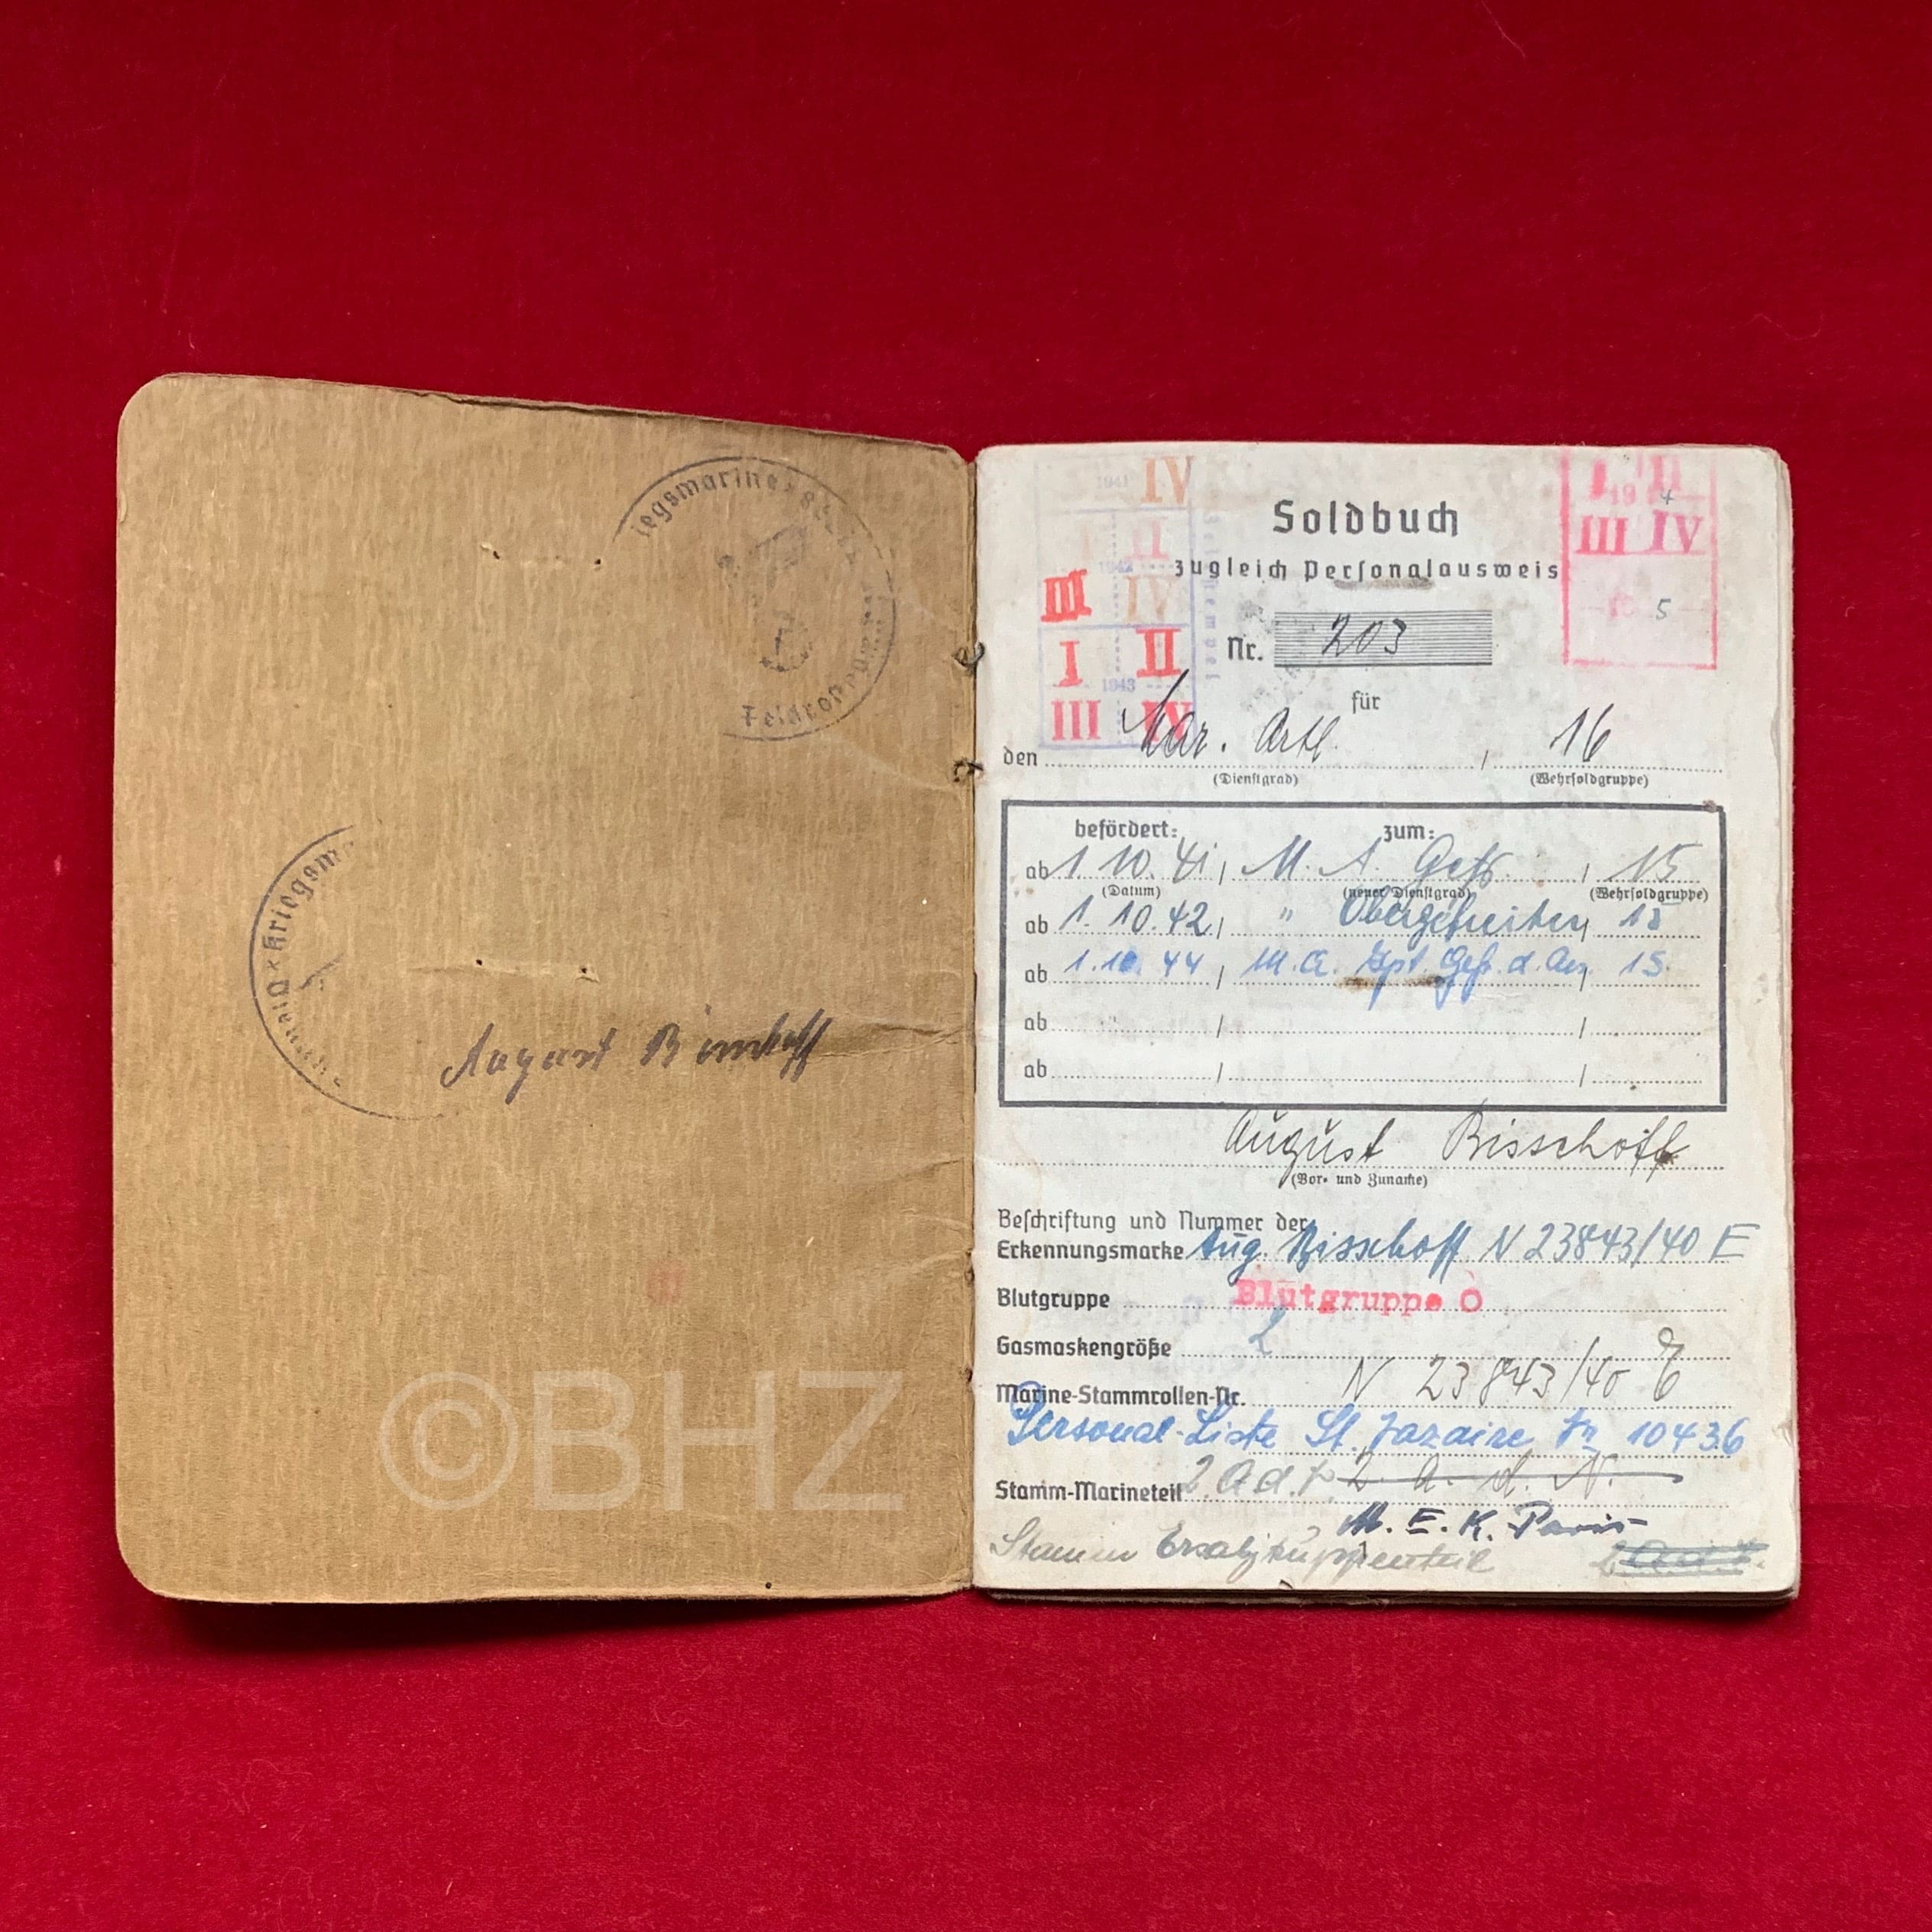 Kriegsmarine
Feldpost
Dienst
Kriegsm
August
©BHZ
1941 IV
I II
1942
III IV
I II
1943
III IV
Stempel
I II
19 4
III IV
5
Soldbuch
zugleich Personalausweis
Nr. 203
für
den Mar. Artl. / 16
(Dienstgrad) (Wehrsoldgruppe)
befördert: zum:
ab 1.10.41 / M. A. Gefr. / 15
(Datum) (neuer Dienstgrad) (Wehrsoldgruppe)
ab 1.10.42 / " Obergefreiten /
ab 1.10.44 / M.A. Hpt. Gefr. / 15.
ab / /
ab / /
August Bisschoff
(Vor- und Zuname)
Beschriftung und Nummer der
Erkennungsmarke Aug. Bisschoff N 23843/40 E
Blutgruppe Blutgruppe O
Gasmaskengröße 2
Marine-Stammrollen-Nr. N 23843/40 E
Personal-Liste St. Nazaire 10436
Stamm-Marineteil 2. A. d. N.
M. E. K. Paris
Stamm